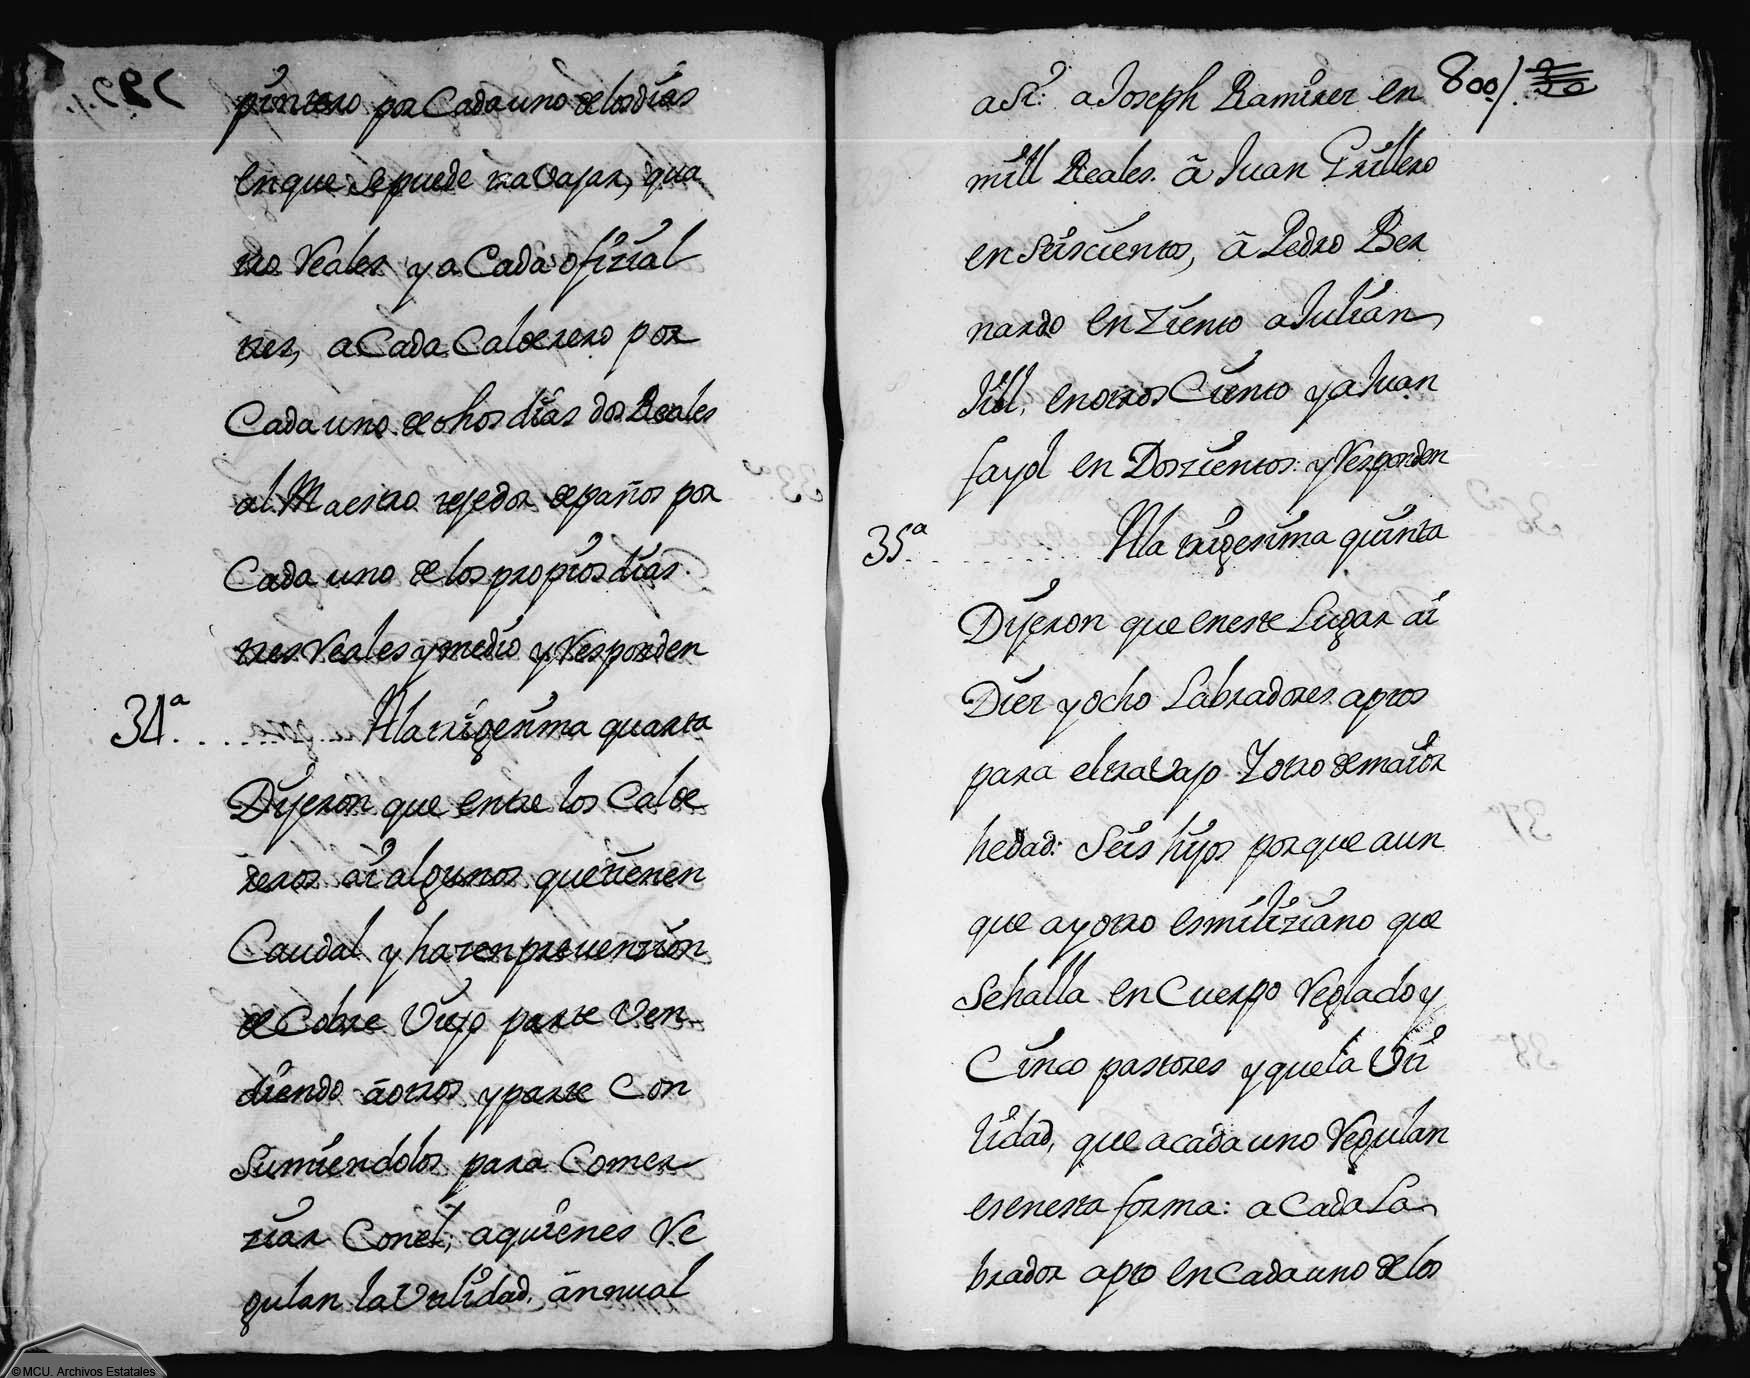 pintero por Cada uno de los dias
en que se puede travajar, qua
tro Reales y a Cada ofizial
tres, a Cada Calderero por
Cada uno de dhos dias dos Reales
al Maestro tejedor de paños por
Cada uno de los propios dias
tres Reales y medio y Responden
34ª. A la trigesima quarta
Dijeron que entre los Calde
reros ai algunos que tienen
Caudal y hazen prevenzion
de Cobre Viejo parte Ven
diendo à otros y parte Con
sumiendolos para Comer
ziar Con el, a quienes Re
gulan la Utilidad, ánnual
800
asi: a Joseph Ramirez en
mill Reales. à Juan Grillero
en seiscientos, à Pedro Ber
nardo en Ziento a Julian
Jill, en otros Ciento y a Juan
fayol en Doszientos: y Responden
35ª. A la trigesima quinta
Dijeron que en este Lugar ai
Diez y ocho Labradores aptos
para el travajo Y otro de maior
hedad: Seis hijos porque aun
que ay otro es miliziano que
se halla en Cuerpo Reglado y
Cinco pastores y que la Uti
lidad, que a cada uno Regulan
es en esta forma: a Cada La
brador apto en Cada uno de los
©MCU. Archivos Estatales